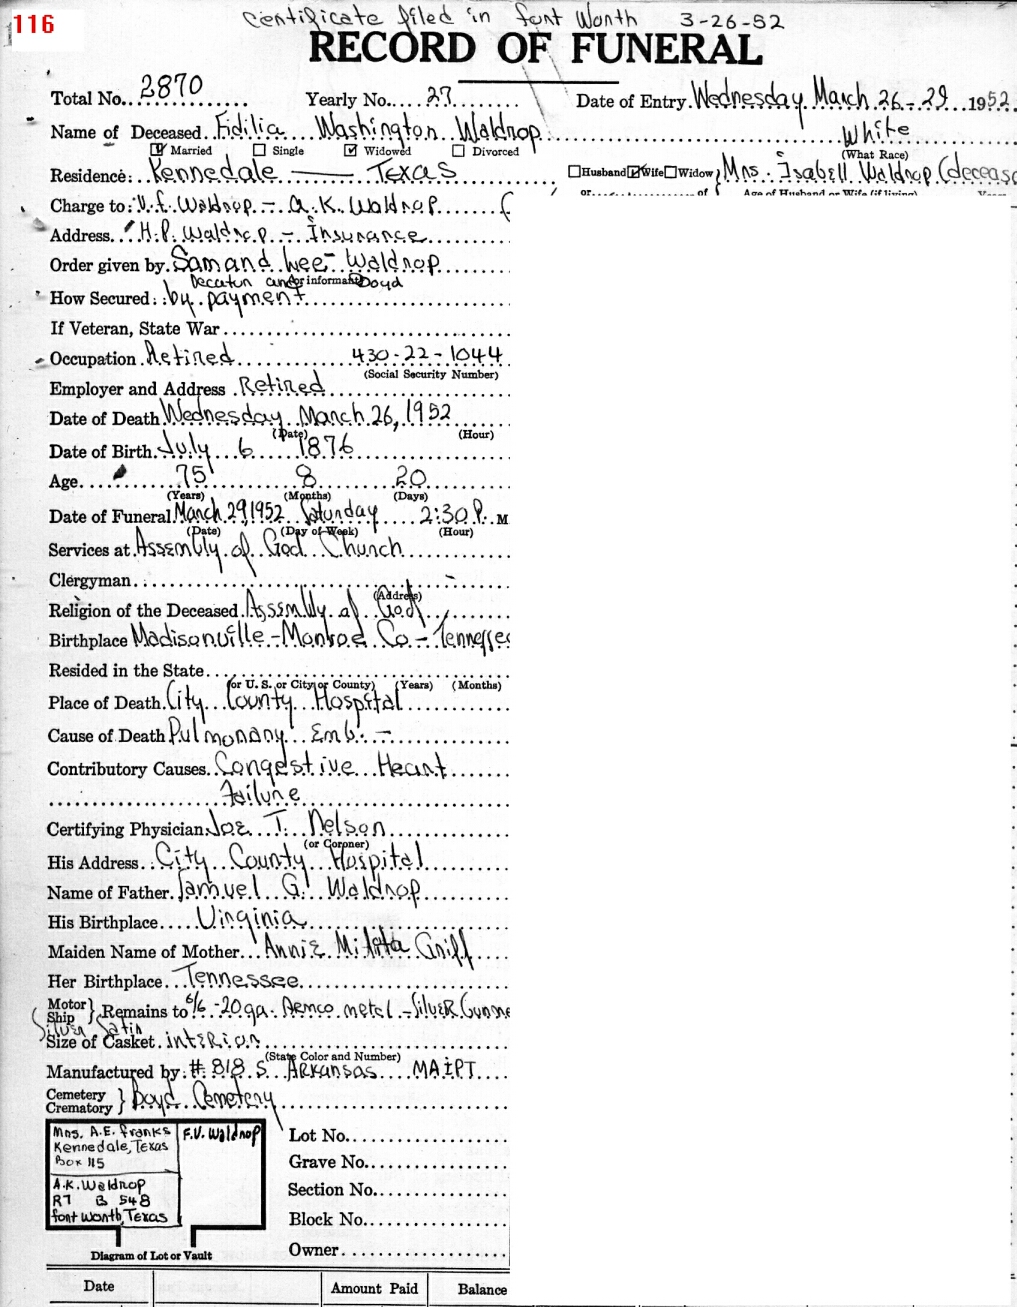 116
Certificate filed in Fort Worth 3-26-52
RECORD OF FUNERAL
Total No. 2870 Yearly No. 27 Date of Entry Wednesday March 26-29 1952
Name of Deceased Fidilia Washington Waldrop White
Married Single Widowed Divorced (What Race)
Residence: Kennedale — Texas Husband Wife Widow Mrs. Isabell Waldrop (deceas
or of Age of Husband or Wife (if living)
Charge to: V.E. Waldrop - A.K. Waldrop (
Address H.P. Waldrop - Insurance
Order given by Sam and Lee Waldrop
Decatur and Boyd
or informant
How Secured: by payment
If Veteran, State War
Occupation Retired 430-22-1044
(Social Security Number)
Employer and Address Retired
Date of Death Wednesday March 26, 1952
(Date) (Hour)
Date of Birth July 6 1876
Age 75 8 20
(Years) (Months) (Days)
Date of Funeral March 29, 1952 Saturday 2:30 P. M
(Date) (Day of Week) (Hour)
Services at Assembly of God Church
Clergyman
(Address)
Religion of the Deceased Assembly of God
Birthplace Madisonville - Monroe Co - Tennessee
Resided in the State
(or U. S. or City or County) (Years) (Months)
Place of Death City County Hospital
Cause of Death Pulmonary Emb. -
Contributory Causes Congestive Heart
Failure
Certifying Physician Joe T. Nelson
(or Coroner)
His Address City County Hospital
Name of Father Samuel G. Waldrop
His Birthplace Virginia
Maiden Name of Mother Annie Griff
Her Birthplace Tennessee
Motor
Ship Remains to 6/6 - 20 ga. Armco metal - Silver
Silver Satin
Size of Casket interior
(State Color and Number)
Manufactured by: # 818 S Arkansas
Cemetery
Crematory Boyd Cemetery
Mrs. A.E. Franks F.V. Waldrop
Kennedale, Texas
Box 115
A.K. Waldrop
R7 B 548
Fort Worth, Texas
Diagram of Lot or Vault
Lot No.
Grave No.
Section No.
Block No.
Owner
Date Amount Paid Balance